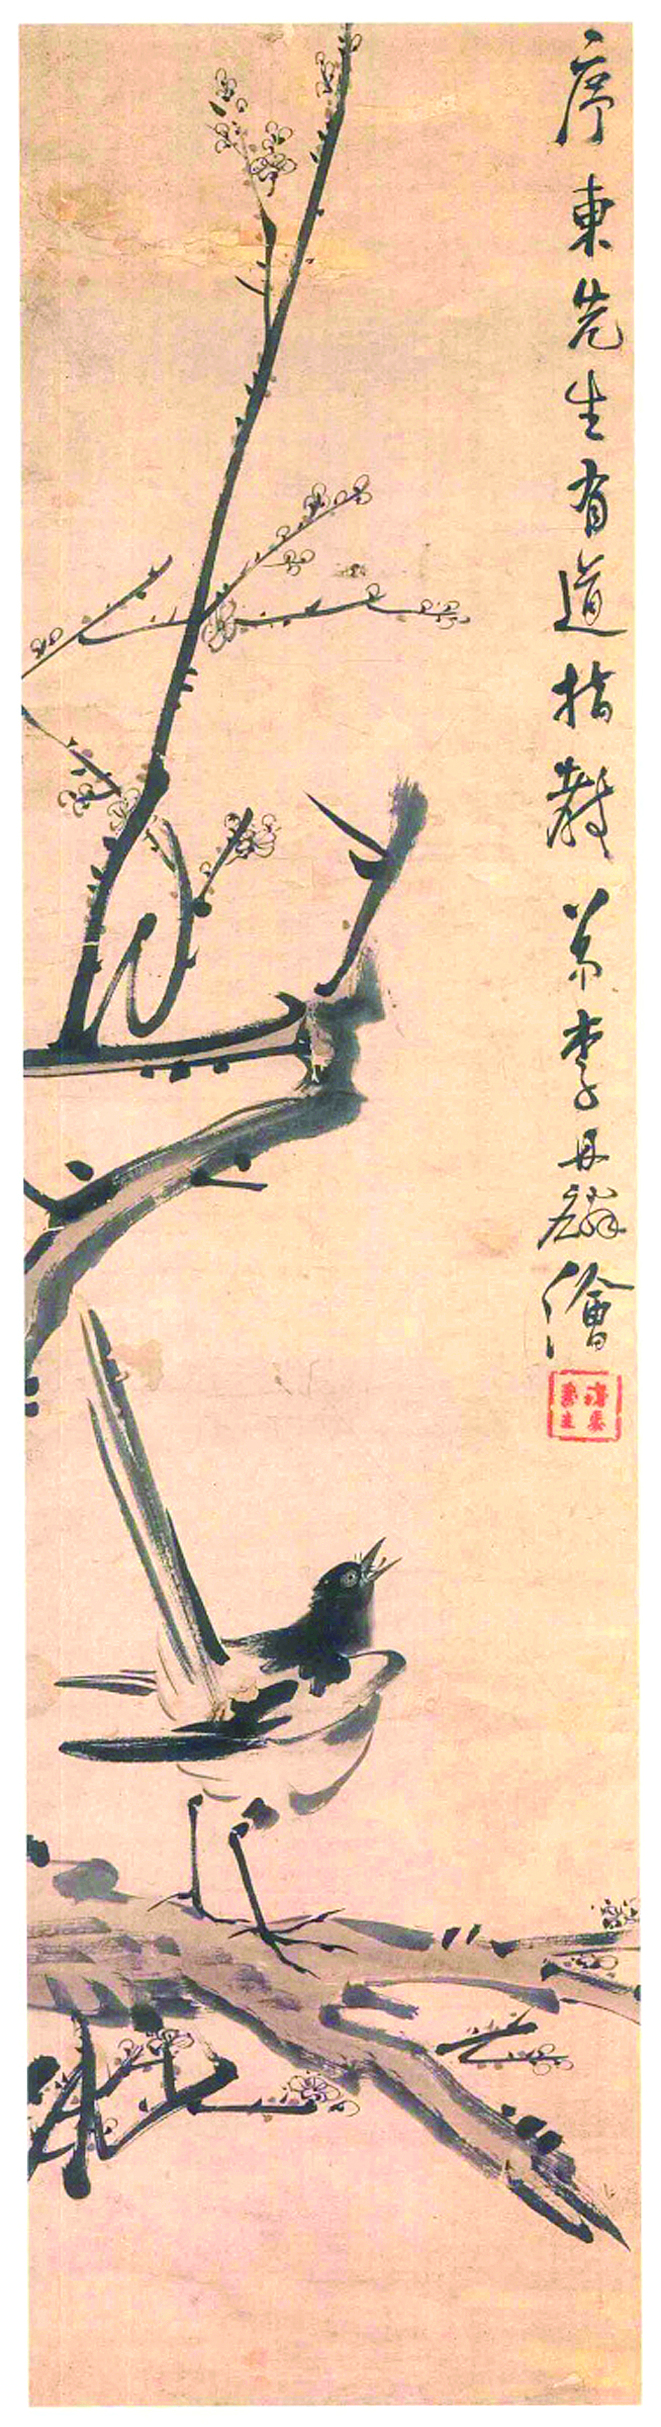 序東先生有道指教 弟李丹麟繪